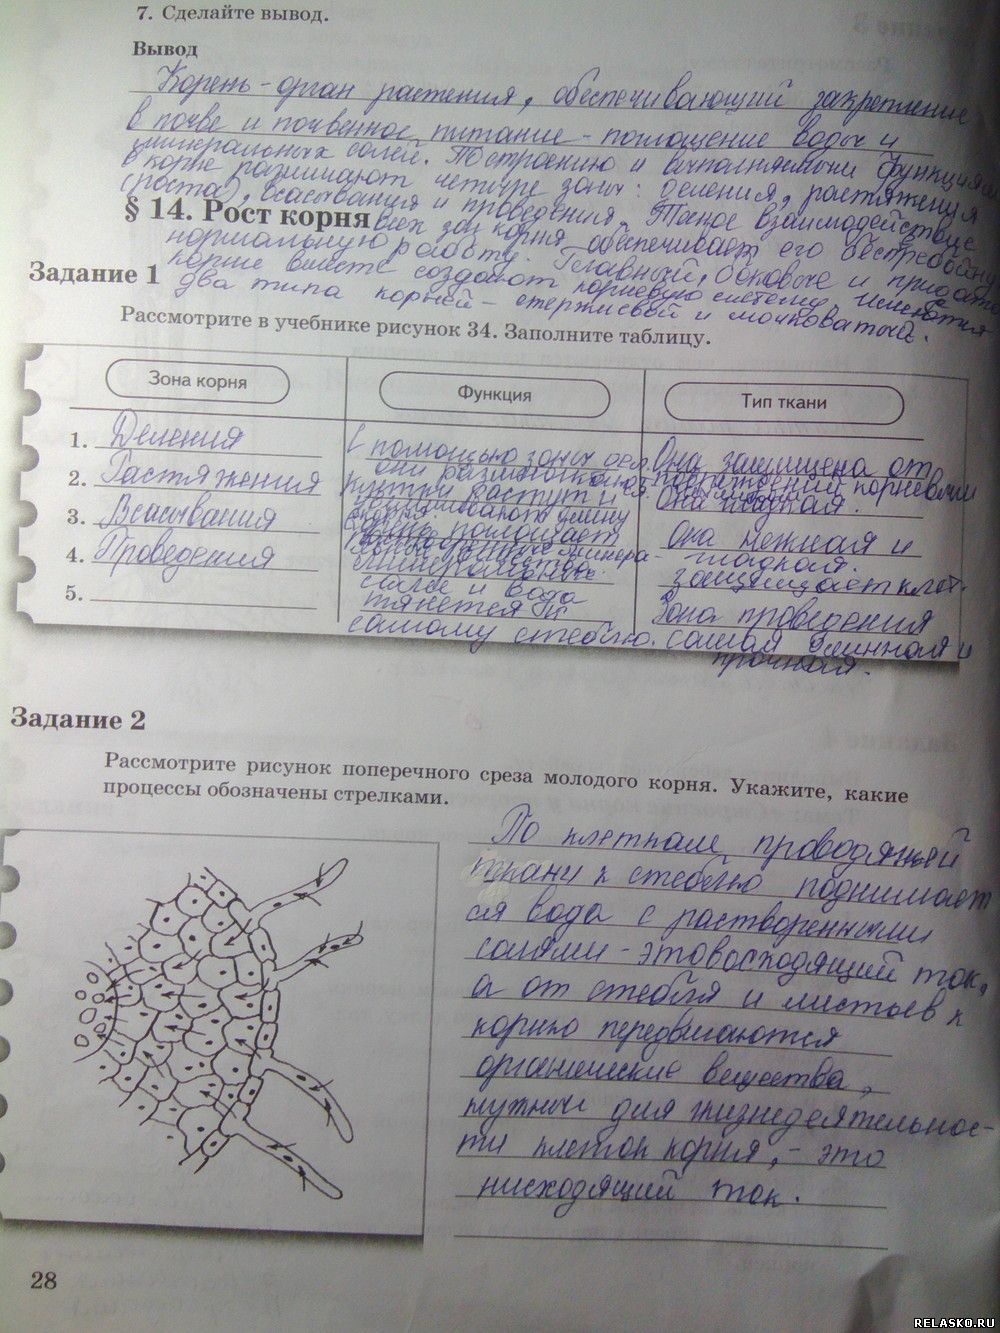 7. Сделайте вывод.
Вывод
Корень - орган растения, обеспечивающий закрепление
в почве и почвенное питание - поглощение воды и
минеральных солей. По строению и выполняемым функциям
в корне различают четыре зоны: деления, растяжения
(роста), всасывания и проведения. Такое взаимодействие
§ 14. Рост корня
всех зон корня обеспечивает его бесперебойную
нормальную работу. Главный, боковые и
Задание 1
корни вместе создают корневую систему. Имеются
два типа корней - стержневой и мочковатый.
Рассмотрите в учебнике рисунок 34. Заполните таблицу.
Зона корня
Функция
Тип ткани
1. Деления
2. Растяжения
3. Всасывания
4. Проведения
5.
С помощью зоны
они
растут и
длину
поглощает
минера-
и вода
тянется к
самому стеблю.
Она защищена от
повреждений корневым
Она гладкая.
Она нежная и
гладкая.
защищает клет.
Зона проведения
самая длинная и
прочная.
Задание 2
Рассмотрите рисунок поперечного среза молодого корня. Укажите, какие
процессы обозначены стрелками.
По клеткам проводящей
ткани к стеблю поднимает
ся вода с растворенными
солями - это восходящий ток,
а от стебля и листьев к
корню передвигаются
органические вещества,
нужные для жизнедеятельнос-
ти клеток корня, - это
нисходящий ток.
28
RELASKO.RU